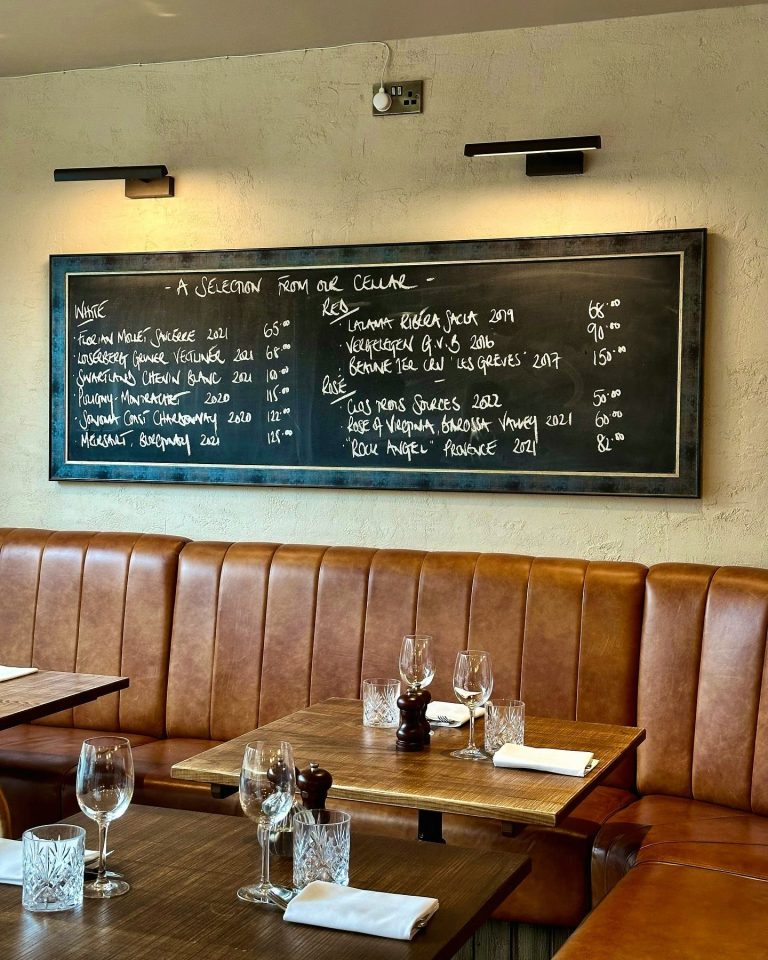 - A SELECTION FROM OUR CELLAR -
WHITE
FLORIAN MOLLET SANCERRE 2021 65.00
LOISERBERG GRUNER VELTLINER 2021 68.00
SWARTLAND CHENIN BLANC 2021 100.00
PULIGNY-MONTRACHET 2020 115.00
SONOMA COAST CHARDONNAY 2020 122.00
MEURSAULT BURGUNDY 2021 125.00
RED
LALAMA RIBERA SACRA 2019 68.00
VERGELEGEN G.V.B 2016 90.00
BEAUNE 1ER CRU "LES GREVES" 2017 150.00
ROSE
CLOS TROIS SOURCES 2022 50.00
ROSE OF VIRGINIA, BAROSSA VALLEY 2021 60.00
"ROCK ANGEL" PROVENCE 2021 82.00